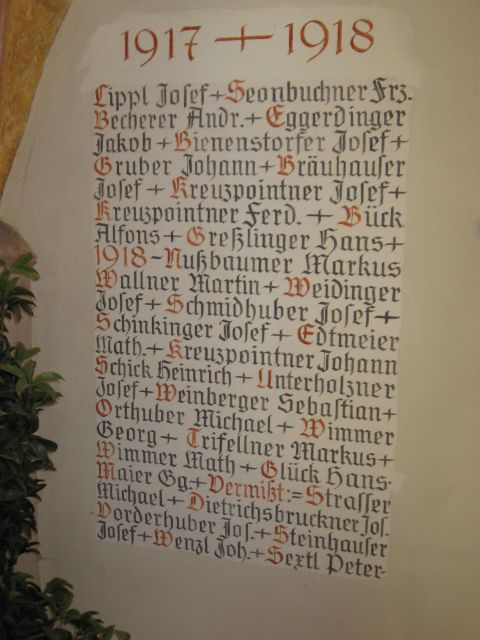 1917 + 1918
Lippl Josef + Seonbuchner Frz.
Becherer Andr. + Eggerdinger
Jakob + Bienenstorfer Josef +
Gruber Johann + Bräuhauser
Josef + Kreuzpointner Josef +
Kreuzpointner Ferd. + Bück
Alfons + Greßlinger Hans +
1918 - Nußbaumer Markus
Wallner Martin + Weidinger
Josef + Schmidhuber Josef +
Schinkinger Josef + Edtmeier
Math. + Kreuzpointner Johann
Schick Heinrich + Unterholzner
Josef + Weinberger Sebastian +
Orthuber Michael + Wimmer
Georg + Trifellner Markus +
Wimmer Math + Glück Hans -
Maier Gg. + Vermißt := Strasser
Michael + Dietrichsbruckner Jos.
Vorderhuber Jos. + Steinhauser
Josef + Wenzl Joh. + Sextl Peter -